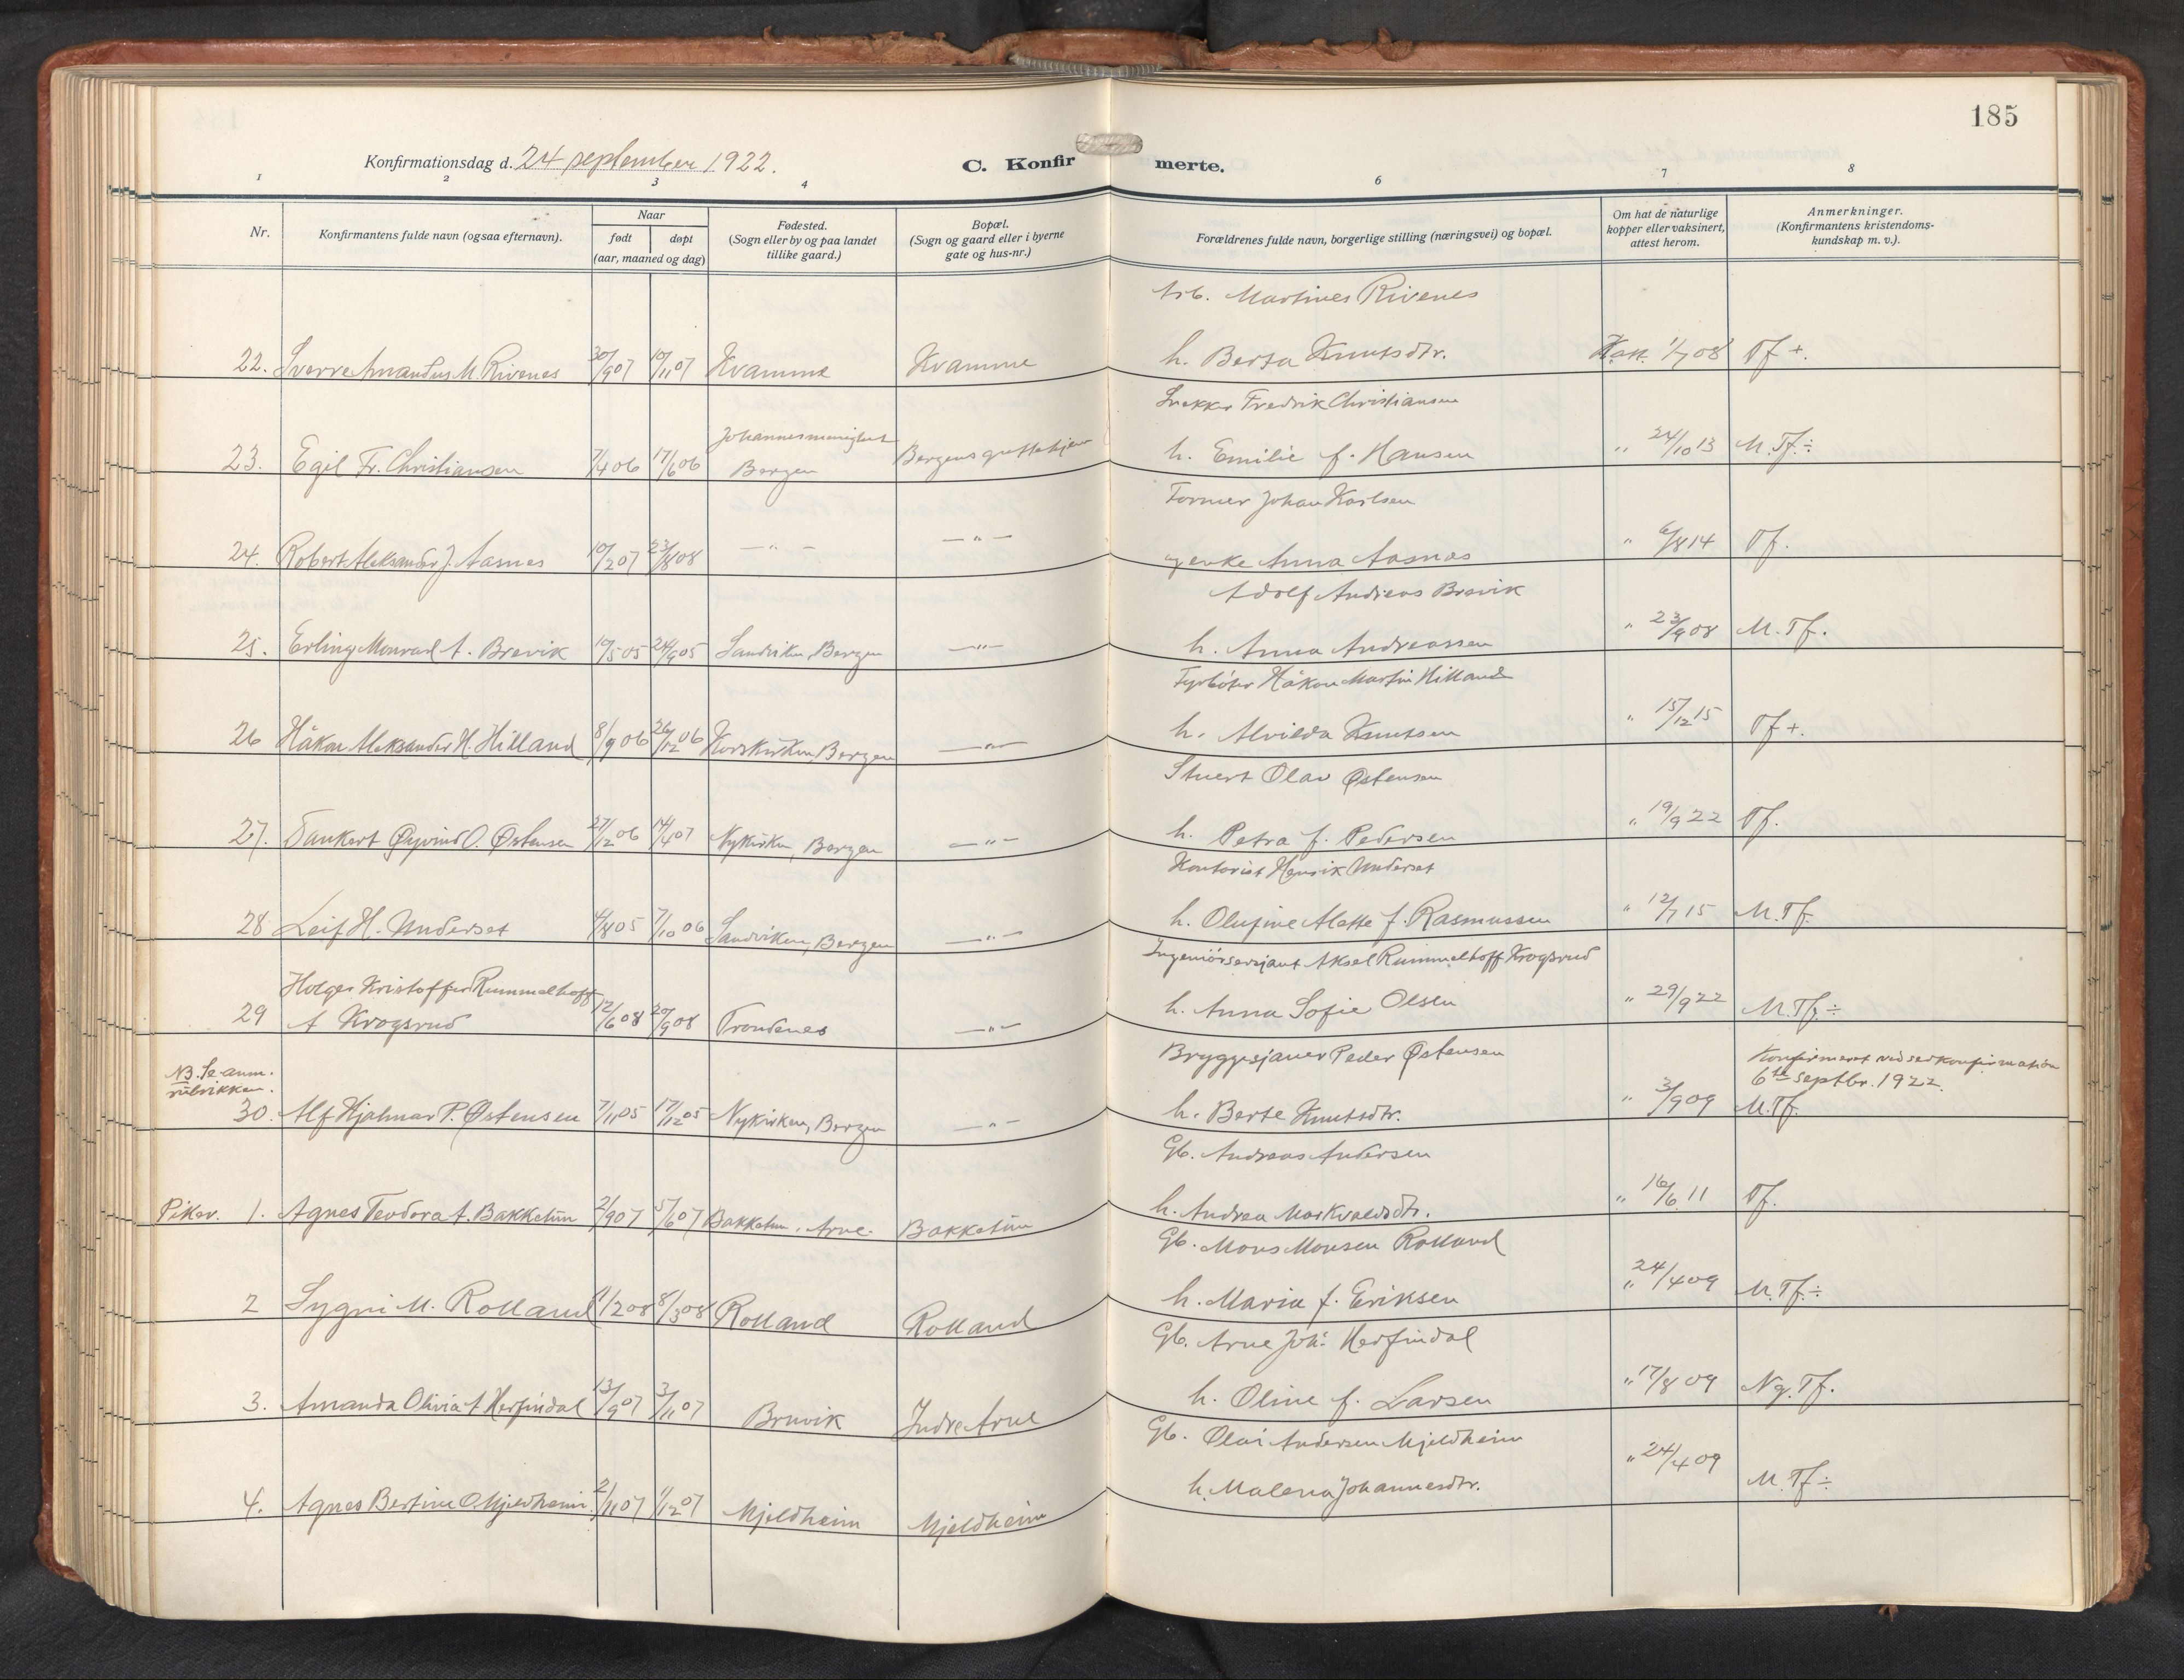 185
Konfirmationsdag d. 24 september 1922.
C. Konfirmerte.
1 2 3 4 6 7 8
Nr.
Konfirmantens fulde navn (ogsaa efternavn).
Naar
født døpt
(aar, maaned og dag)
Fødested.
(Sogn eller by og paa landet
tillike gaard.)
Bopæl.
(Sogn og gaard eller i byerne
gate og hus-nr.)
Forældrenes fulde navn, borgerlige stilling (næringsvei) og bopæl.
Om hat de naturlige
kopper eller vaksinert,
attest herom.
Anmerkninger.
(Konfirmantens kristendoms-
kundskap m. v.).
Arb. Martines Rivenes
22. Sverre Amandus M. Rivenes 30/9 07 10/11 07 Kvamme Kvamme h. Berta Knutsdtr. 1/7 08 Tf +.
Fredrik Christiansen
23. Egil Fr. Christiansen 7/4 06 17/6 06 Johannesmenighet Bergen Bergens guttehjem h. Emilie f. Hansen " 24/10 13 M. Tf. ÷
Former Johan Karlsen
24. Robert Aleksander J. Aasnes 10/2 07 23/8 08 — " — — " — Anna Aasnes " 6/8 14 Tf.
Adolf Andreas Brevik
25. Erling Monrad A. Brevik 10/5 05 24/9 05 Sandviken, Bergen — " — h. Anna Andreassen " 23/9 08 M. Tf.
Fyrbøter Håkon Martin Hilland
26 Håkon Aleksander H. Hilland 8/9 06 26/12 06 Korskirken, Bergen — " — h. Alvilda Knutsen " 15/12 15 Tf +.
Stuert Olav Østensen
27. Tankert Øyvind O. Østensen 27/12 06 14/4 07 Nykirken, Bergen — " — h. Petra f. Pedersen " 19/9 22 Tf.
Kontorist Henrik Underset
28 Leif H. Underset 4/8 05 7/10 06 Sandviken, Bergen — " — h. Olufine Alette f. Rasmussen " 12/7 15 M. Tf.
Ingeniørsersjant Aksel Rummelhoff Krogsrud
Holger Kristoffer Rummelhoff
29 A Krogsrud 12/6 08 20/9 08 Trondenes — " — h. Anna Sofie Olsen " 29/9 22 M. Tf. ÷
Bryggesjauer Peder Østensen
Konfirmert ved serkonfirmation
6te septbr. 1922.
NB. Se anm.
rubrikken.
30. Alf Hjalmar P. Østensen 7/11 05 17/12 05 Nykirken, Bergen — " — h. Berte Knutsdtr. " 3/9 09 M. Tf.
Gb. Andreas Andersen
Piker. 1. Agnes Teodora A. Bakketun 2/9 07 5/6 07 Bakketun, Arne. Bakketun h. Andrea Markvaldsdtr. " 16/6 11 Tf.
Gb. Mons Monsen Rolland
2 Sygni M. Rolland 11/2 08 8/3 08 Rolland Rolland h. Maria f. Eriksen " 24/4 09 M. Tf. ÷
Gb. Arne Joh. Herfindal
3. Amanda Olivia A Herfindal 13/9 07 3/11 07 Bruvik Indre Arne h. Oline f. Larsen " 17/8 09 Ng. Tf.
Gb. Olai Andersen Mjeldheim
4. Agnes Bertine O. Mjeldheim 2/11 07 1/12 07 Mjeldheim Mjeldheim h. Malena Johannesdtr. " 24/4 09 M. Tf ÷